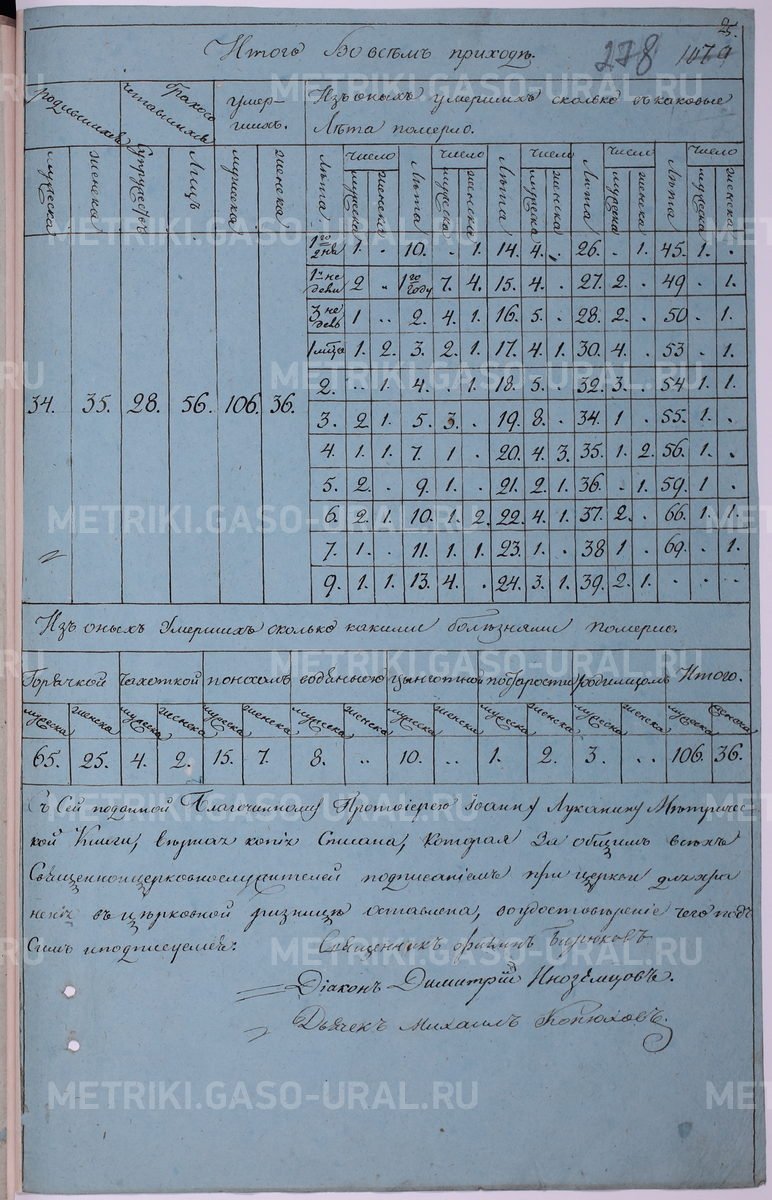 25.
Итого Во всѣмъ приходѣ.
278 1079
родившихся
бракосочетавшихся
умерших.
Изъ оныхъ умершихъ сколько въ каковые
Лѣта померло.
мужеска женска супружествъ Лицъ мужеска женска Лѣта число мужеска женска Лѣта число мужеска женска Лѣта число мужеска женска Лѣта число мужеска женска Лѣта число мужеска женска
1го дня 1. . 10. . 1. 14. 4. . 26. . 1. 45. 1. .
1й недели 2 .. 1го году 7. 4. 15. 4. . 27. 2. . 49 . 1.
3 недель 1 .. 2. 4. 1. 16. 5. . 28. 2. . 50 . 1.
1 мѣца 1. 2. 3. 2. 1. 17. 4. 1. 30. 4. . 53 . 1.
2. .. 1. 4. . 1. 18. 5. . 32. 3. . 54 1. 1.
34. 35. 28. 56. 106. 36. 3. 2 1. 5. 3. . 19. 8. . 34. 1 . 55. 1. .
4. 1. 1. 7. 1 . 20. 4. 3. 35. 1. 2. 56. 1. .
5. 2. . 9. 1. . 21. 2. 1. 36. . 1. 59. 1 .
6. 2. 1. 10. 1. 2. 22. 4. 1. 37. 2. . 66. 1. 1.
7. 1. . 11. 1. 1. 23. 1. . 38 1 . 69. . 1.
9. 1. 1. 13. 4. . 24. 3. 1. 39. 2. 1. . . .
Изъ оныхъ Умершихъ сколько какими болѣзнями померло.
Горячкой чахоткой поносомъ водяною цынготной постарости родимцомъ Итого.
мужеска женска мужеска женска мужеска женска мужеска женска мужеска женска мужеска женска мужеска женска мужеска женска
65. 25. 4. 2. 15. 7. 8. .. 10. .. 1. 2. 3. .. 106. 36.
Съ Сей поданной Благочинному Протоіерею Іоанну Луканину Мѣтричес-
кой Книги, вѣрная копія Списана, которая За общимъ всѣхъ
Священноицерковнослужителей подписаніемъ при церкви для хра
ненія въ цѣрковной ризницѣ оставлена, воудостовѣреніе чего подъ
Симъ иподписуемся:
Священникъ Бирюковъ
Діаконъ Димитрій Иноземцовъ.
Дьячекъ Михаилъ Конюховъ
METRIKI.GASO-URAL.RU